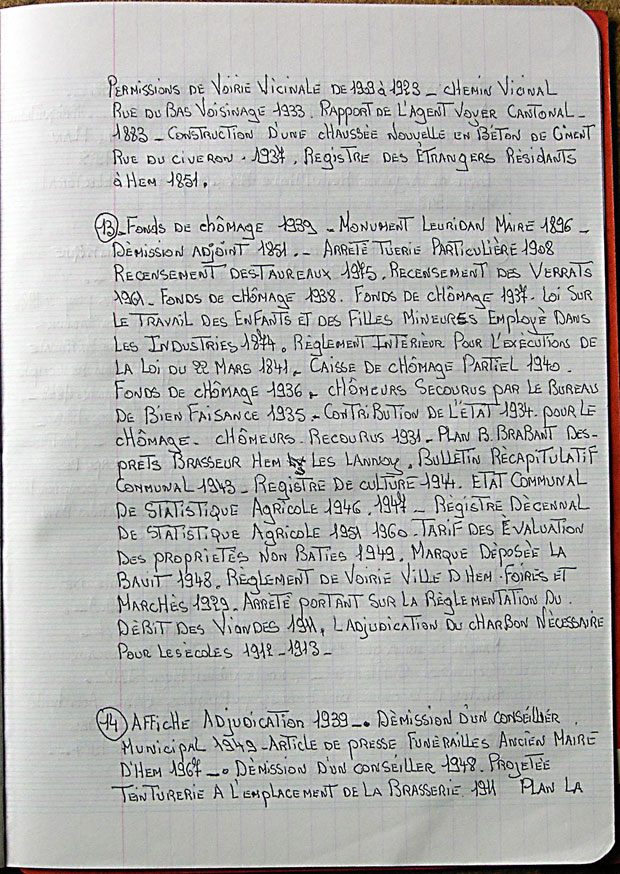 PERMISSIONS DE VOIRIE VICINALE DE 1909 à 1923 _ CHEMIN VICINAL
RUE DU BAS VOISINAGE 1933. RAPPORT DE L'AGENT VOYER CANTONAL _
1883 _ CONSTRUCTION D'UNE CHAUSSÉE NOUVELLE EN BÉTON DE CIMENT
RUE DU CIVERON. 1937. REGISTRE DES ÉTRANGERS RÉSIDANTS
à HEM 1851.
13 _ FONDS DE CHÔMAGE 1939 _ MONUMENT LEURIDAN MAIRE 1896 _
DÈMISSION ADJOINT 1851. _ ARRETÉ TUERIE PARTICULIÈRE 1908
RECENSEMENT DES TAUREAUX 1945. RECENSEMENT DES VERRATS
1961 _ FONDS DE CHÔMAGE 1938. FONDS DE CHÔMAGE 1937. LOI SUR
LE TRAVAIL DES ENFANTS ET DES FILLES MINEURES EMPLOYÈ DANS
LES INDUSTRIES 1874. RÈGLEMENT INTÈRIEUR POUR L'EXÉCUTION DE
LA LOI DU 22 MARS 1841 _ CAISSE DE CHÔMAGE PARTIEL 1940.
FONDS DE CHÔMAGE 1936 _ CHÔMEURS SECOURUS PAR LE BUREAU
DE BIEN FAISANCE 1935 _ CONTRIBUTION DE L'ÉTAT 1934. POUR LE
CHÔMAGE _ CHÔMEURS. RECOURUS 1931 _ PLAN B. BRABANT DES-
PRETS BRASSEUR HEM LES LANNOY. BULLETIN RÉCAPITULATIF
COMMUNAL 1943 _ REGISTRE DE CULTURE 1944. ETAT COMMUNAL
DE STATISTIQUE AGRICOLE 1946. 1947 _ RÈGISTRE DÈCENNAL
DE STATISTIQUE AGRICOLE 1951 1960. TARIF DES ÉVALUATION
DES PROPRIETÈS NON BATIES 1949. MARQUE DÈPOSÉE LA
BAUIT 1948. RÈGLEMENT DE VOIRIE VILLE D HEM. FOIRES ET
MARCHÈS 1929. ARRETÉ PORTANT SUR LA RÈGLEMENTATION DU.
DÈBIT DES VIANDES 1911. L'ADJUDICATION DU CHARBON NÈCESSAIRE
POUR LES ÉCOLES 1912 _ 1913 _
14 AFFICHE ADJUDICATION 1939 _. DÈMISSION D'UN CONSEILLER
MUNICIPAL 1949 _ ARTICLE DE PRESSE FUNÈRAILLES ANCIEN MAIRE
D'HEM 1967 _. DÈMISSION D'UN CONSEILLER 1948. PROJETÈE
TEINTURERIE A L'EMPLACEMENT DE LA BRASSERIE. 1911 PLAN LA